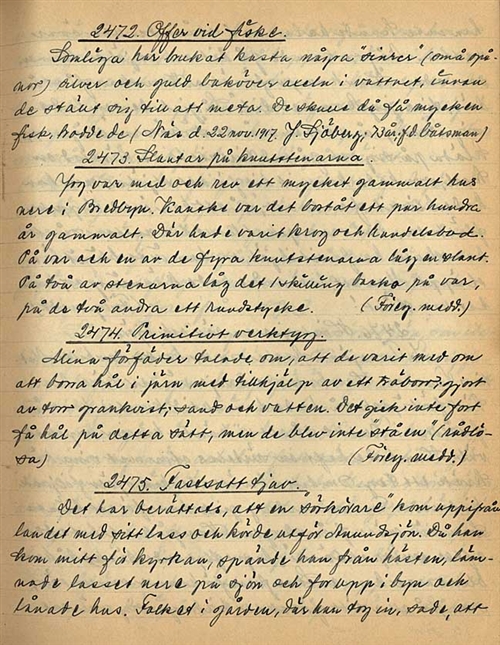 2472. Offer vid fiske.
Somliga har brukat kasta några "sinrer" (små spi-
nor) silver och guld baköver axeln i vattnet, innan
de stänt sig till att meta. De skulle då få mycken
fisk, trodde de (Näs d. 22 nov. 1917. J. Sjöberg, 73 år, f.d. båtsman)
2473. Slantar på knutstenarna.
Jog var med och rev ett mycket gammalt hus
nere i Bredbyn. Kanske var det bortåt ett par hundra
år gammalt. Där hade varit krog och handelsbod.
På var och en av de fyra knutstenarna låg en slant.
På två av stenarna låg det 1 skilling banko på var,
på de två andra ett rundstycke. (Föreg. medd.)
2474. Primitivt verktyg.
Mina förfäder talade om, att de varit med om
att borra hål i järn med tillhjälp av ett träborr, gjort
av torr grankvist, sand och vatten. Det gick inte fort
få hål på detta sätt, men de blev inte "ståen" (rådlö-
sa) (Föreg. medd.)
2475. Fastsatt tjuv.
Det har berättats, att en "sörkörare" kom uppifrån
landet med sitt lass och körde utför Anundsjön. Då han
kom mitt för kyrkan, spände han från hästen, läm-
nade lasset nere på sjön och for upp i byn och
lånade hus. Folket i gården, där han tog in, sade, att